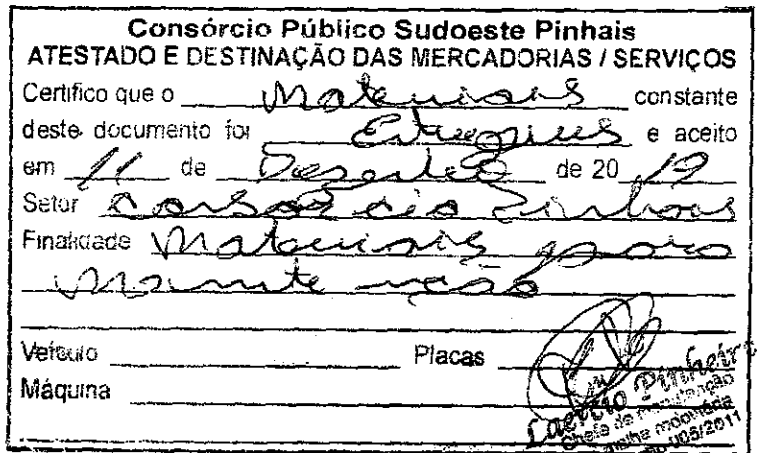 Consórcio Público Sudoeste Pinhais
ATESTADO E DESTINAÇÃO DAS MERCADORIAS / SERVIÇOS
Certifico que o Materiais constante
deste documento foi Entregues e aceito
em 11 de Dezembro de 20
Setor Consórcio Pinhais
Finalidade Materiais para
Manutenção
Veículo Placas
Máquina
Laercio Pinheiro
Chefe de manutenção
005/2011